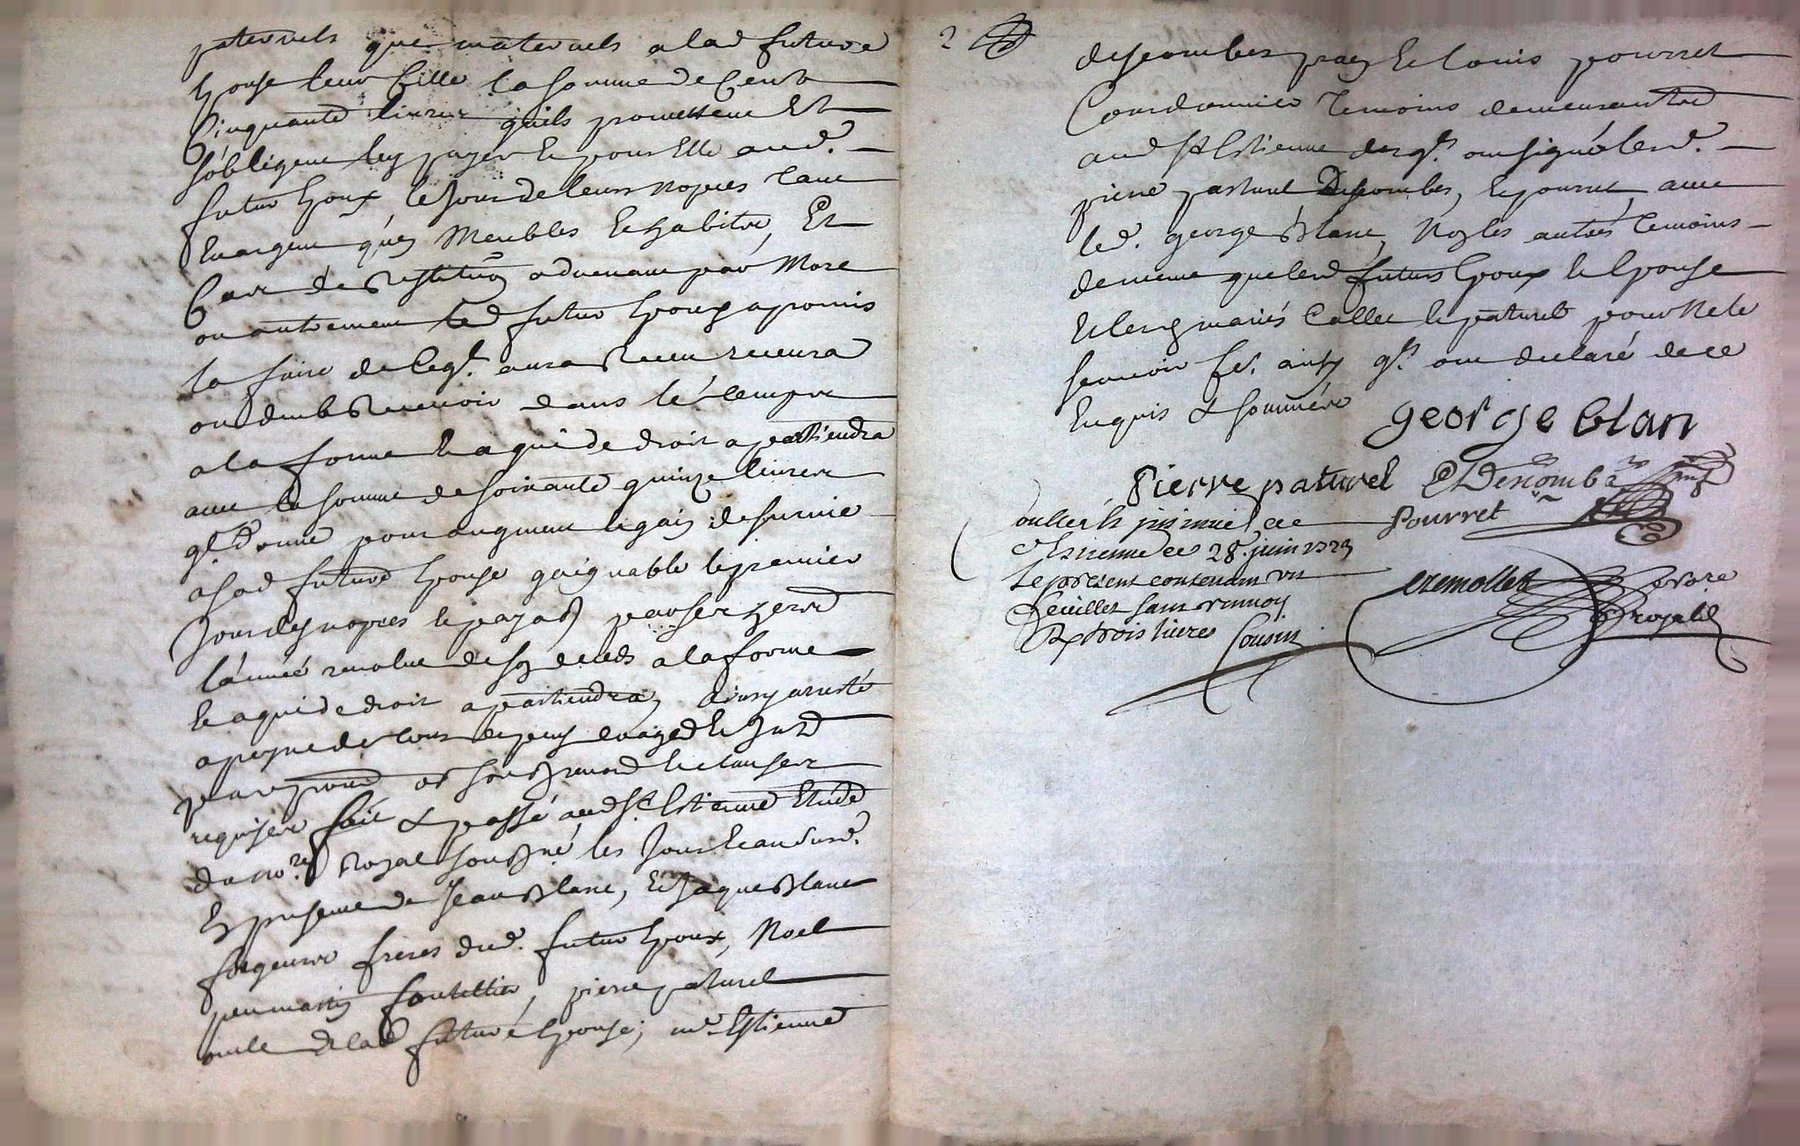 paternels que maternels a lad future
Epouse leur fille la somme de Cent
Cinquante livres quils promettent Et
sobligent payer pour Elle aud.
futur Epoux le Jour de leurs nopces tant
En argent qu'en Meubles Et habits, Et
Cas de restitution advenant par Mort
ou autrement led futur Epoux a promis
la faire de Ce qt. aura Receu recevra
ou deub Recevoir dans le temps
a la forme Et a qui de droit apartiendra
avec la somme de soixante quinze livres
qt. donne pour augment Et gain de survie
a sad future Epouse gaignable le premier
Jour des nopces Et payab
l'année revolue de son deceds a la forme
Et a qui de droit apartiendra, Ainsy aresté
a peyne de tous
par Et clauses
requises fait & passé aud St. Estienne Etude
du no.re Royal soussné les Jour Et an susd.
En presence de Jean Blanc, Et Jaque Blanc
forgeurs freres dud. futur Epoux, Noel
futur Epouse; me. Estienne
pierre paturel
oncle de lad future
2
descombes pran Et Louis pourret
Cordonnier temoins demeurants
aud St Estienne desqt. ont signé lesd.
pierre paturel Descombes, Et pourret avec
led. george Blanc, Non les autres temoins
de meme que lesd futurs Epoux Et Epouse
Et les mariés Collet Et paturel pour ne le
scavoir fe. ainsy qt. ont declaré de ce
Enquis & sommés
george blan
Pierre paturel Descombes
Pourret
St Estienne ce 28. juin 1723
Le present contenant un
feuillet sans renvoy
Rx trois livres Cousin
cremollet no.re
Royal